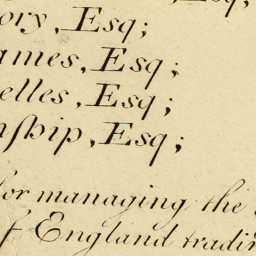 Esq;
ory, Esq;
ames, Esq;
elles, Esq;
nſhip, Esq;
for managing the
of England tradin